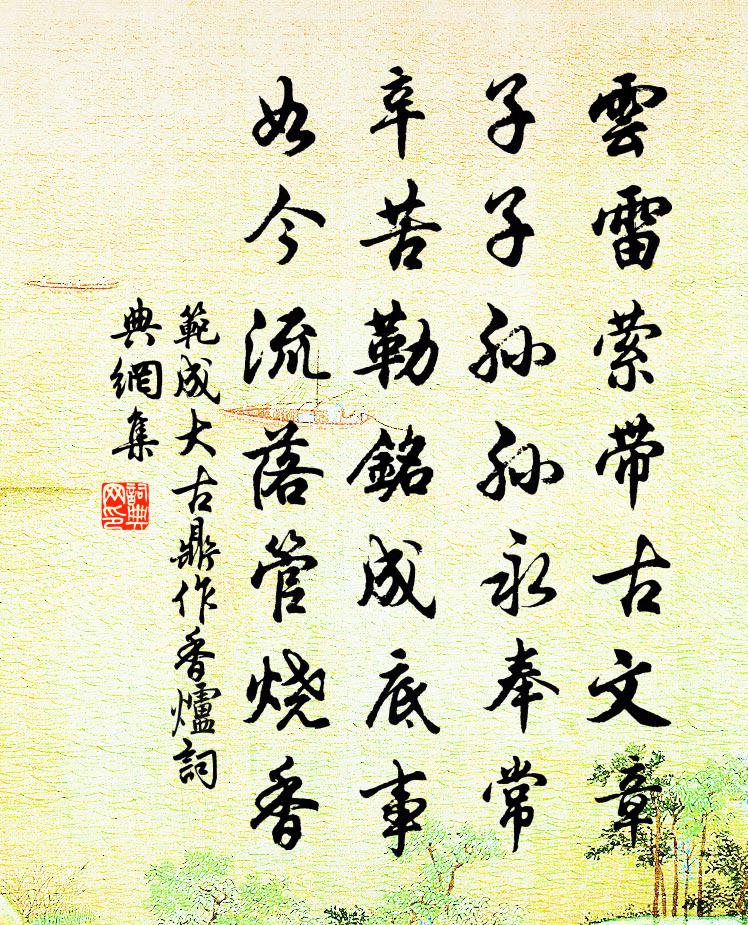 雲雷萦带古文章
子子孙孙永奉常
辛苦勒銘成底事
如今流落管烧香
範成大古鼎作香爐詞
典網集
詞典
网印